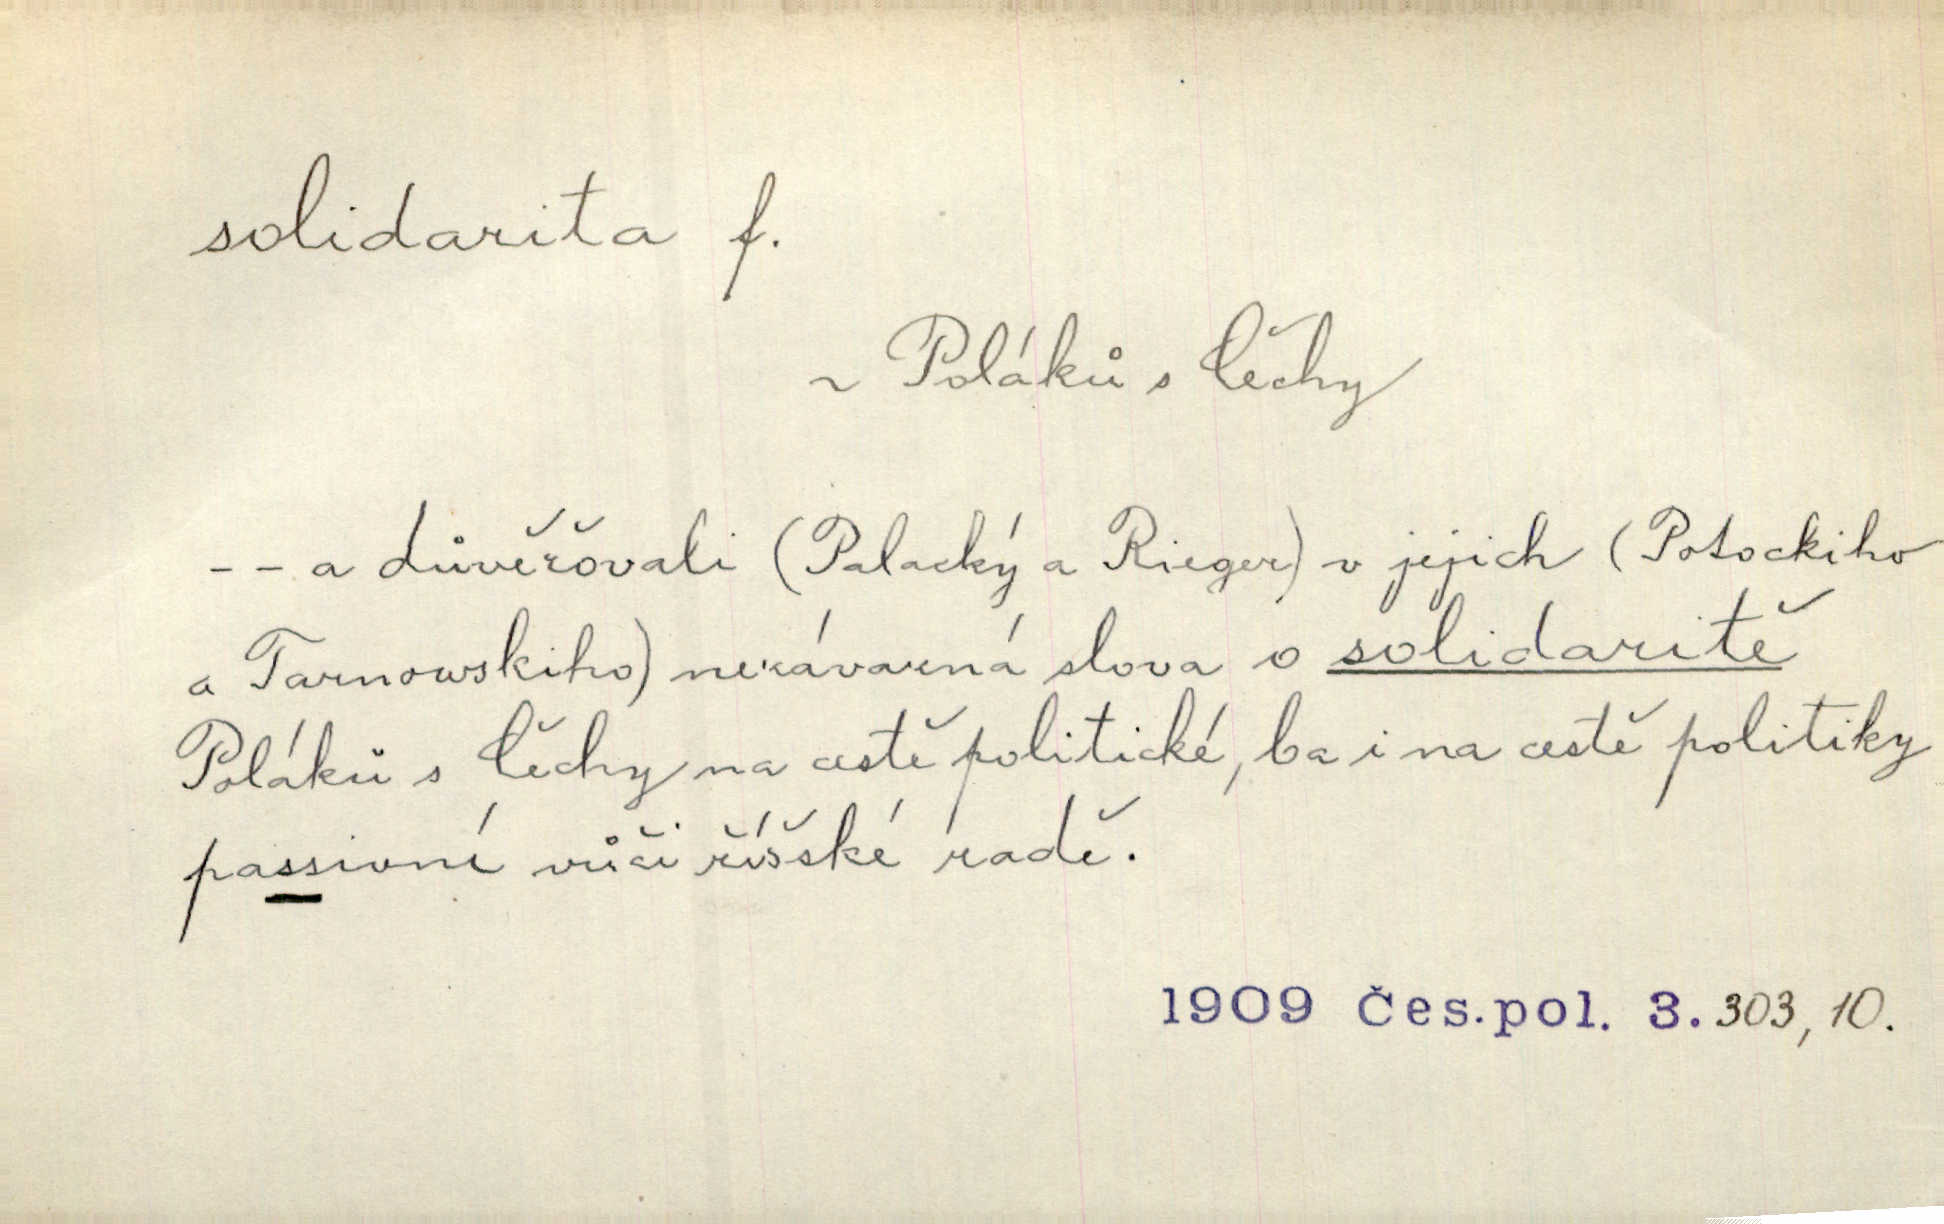 solidarita f.
~ Poláků s Čechy
-- a důvěřovali (Palacký a Rieger) v jejich (Potockiho
a Tarnowskiho) nezávazná slova o solidaritě
Poláků s Čechy na cestě politické, ba i na cestě politiky
passivní vůči říšské radě.
1909 Čes.pol. 3. 303, 10.